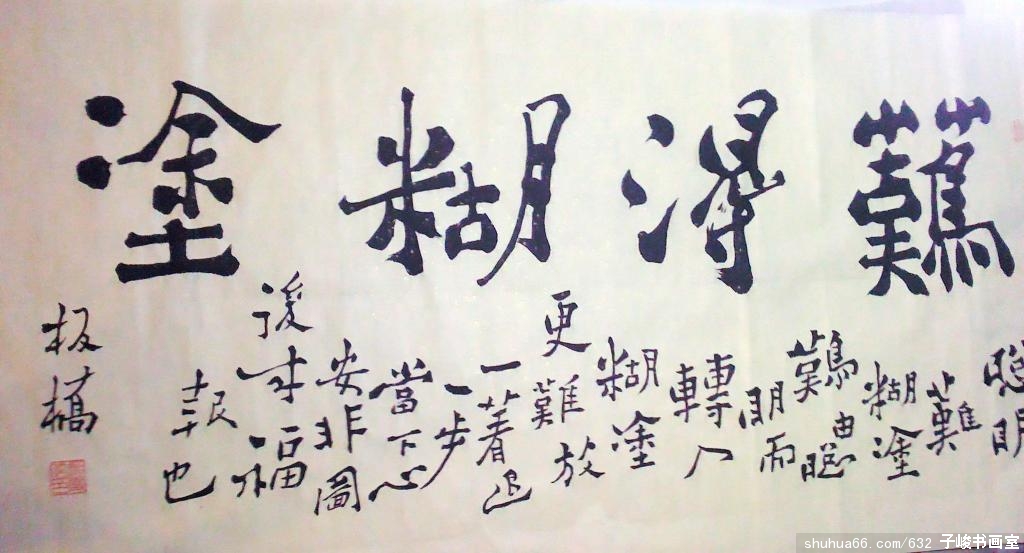 難得糊塗
聰明
難
糊塗
難由聰
明而
轉入
糊塗
更難放
一著退
一步
當下心
安非圖
後來福
報也
板橋
shuhua66.com/632 子峻书画室